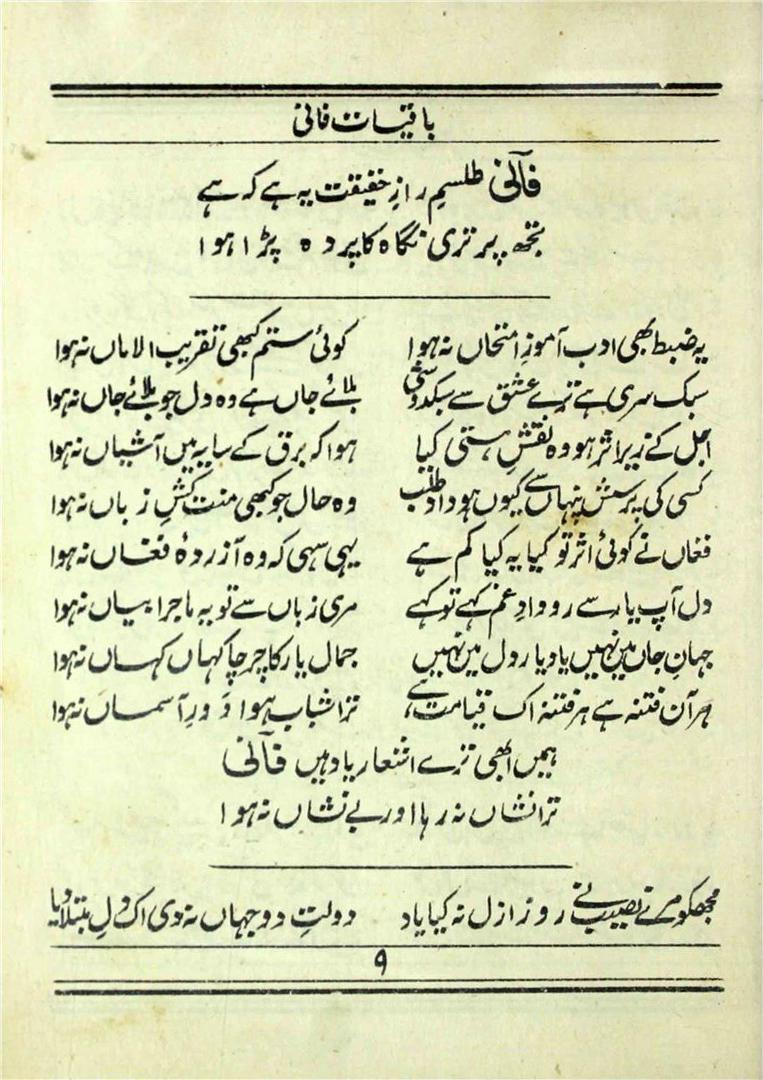 باقیات فانی
فانی طلسمِ رازِ حقیقت یہ ہے کہ ہے
تجھ پر تری نگاہ کا پردہ پڑا ہوا
یہ ضبط بھی ادب آموزِ امتحاں نہ ہوا کوئی ستم کبھی تقریب الاماں نہ ہوا
سبک سری ہے ترے عشق سے سبکدوشی بلائے جاں ہے وہ دل جو بلائے جاں نہ ہوا
اجل کے زیر اثر ہو وہ نقشِ ہستی کیا ہوا کہ برق کے سایہ میں آشیاں نہ ہوا
کسی کی پرسش پنہاں سے کیوں ہو داد طلب وہ حال جو کبھی منت کشِ زباں نہ ہوا
فغاں نے کوئی اثر تو کیا یہ کیا کم ہے یہی سہی کہ وہ آزردۂ فغاں نہ ہوا
دل آپ یار سے رودادِ غم کہے تو کہے مری زباں سے تو یہ ماجرا بیاں نہ ہوا
جہانِ جاں میں نہیں یا دیارِ دل میں نہیں جمال یار کا چرچا کہاں کہاں نہ ہوا
ہر آن فتنہ ہے ہر فتنہ اک قیامت ہے ترا شباب ہوا دَورِ آسماں نہ ہوا
ہمیں ابھی ترے اشعار یاد ہیں فانی
ترا نشاں نہ رہا اور بے نشاں نہ ہوا
مجھکو مرے نصیب نے روز ازل نہ کیا یاد دولتِ دو جہاں نہ دی اک دلِ مبتلا دیا
۹